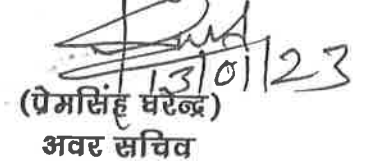 13/01/23
(प्रेमसिंह घरेन्द्र)
अवर सचिव